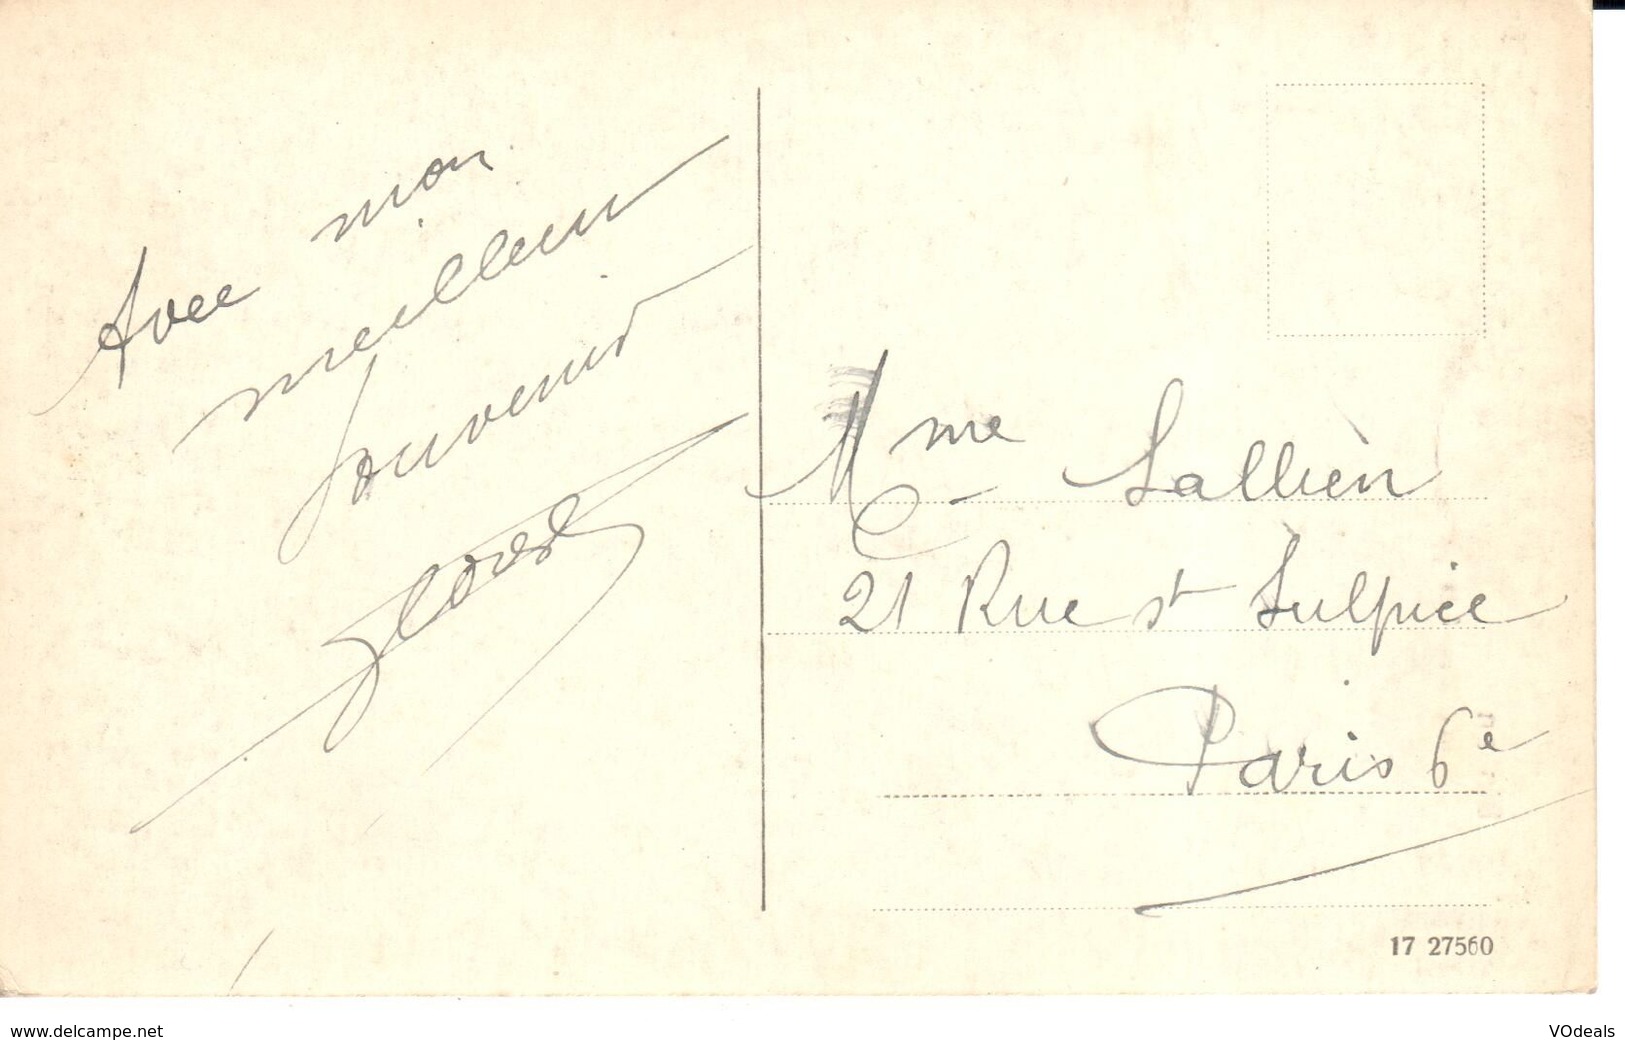 Avec mon
meilleur
souvenir
Mme Lallien
21 Rue st Sulpice
Paris 6e
17 27560
www.delcampe.net
VOdeals